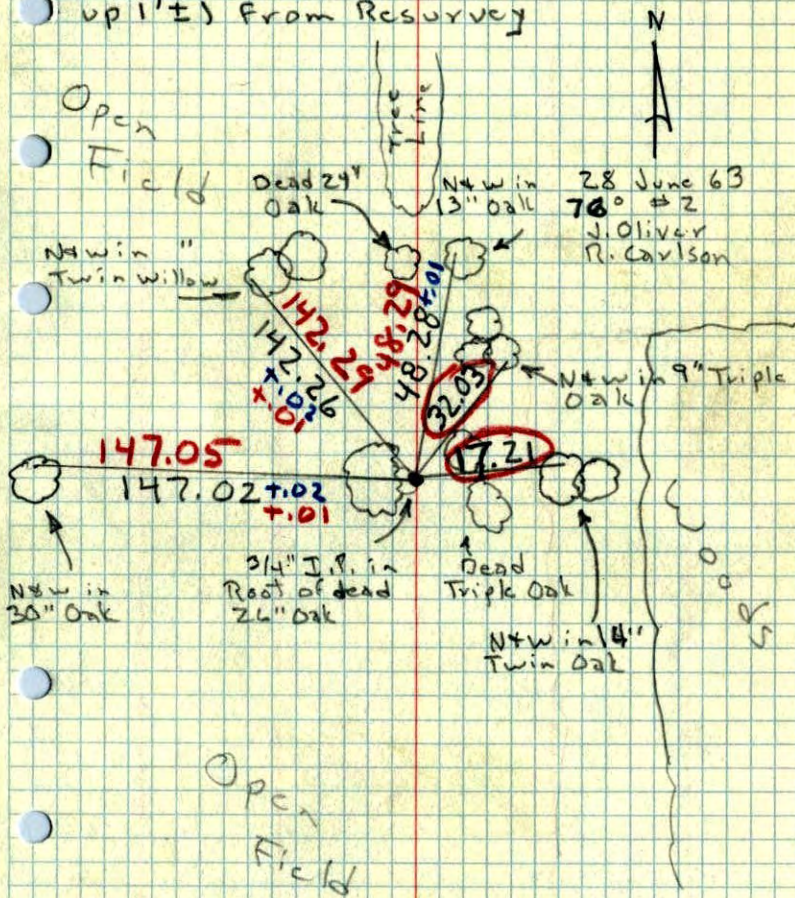 up 1'±) From Resurvey
N
Open
Field
Tree
Line
Dead 24"
Oak
N&W in
13" Oak
28 June 63
76° #2
J. Oliver
R. Carlson
N&W in "
Twin Willow
142.29
142.26
+.02
+.01
48.29
48.28+.01
32.03
N&W in 9" Triple
Oak
17.21
147.05
147.02+.02
+.01
N&W in
30" Oak
3/4" I.P. in
Root of dead
26" Oak
Dead
Triple Oak
N&W in 14"
Twin Oak
Open
Field